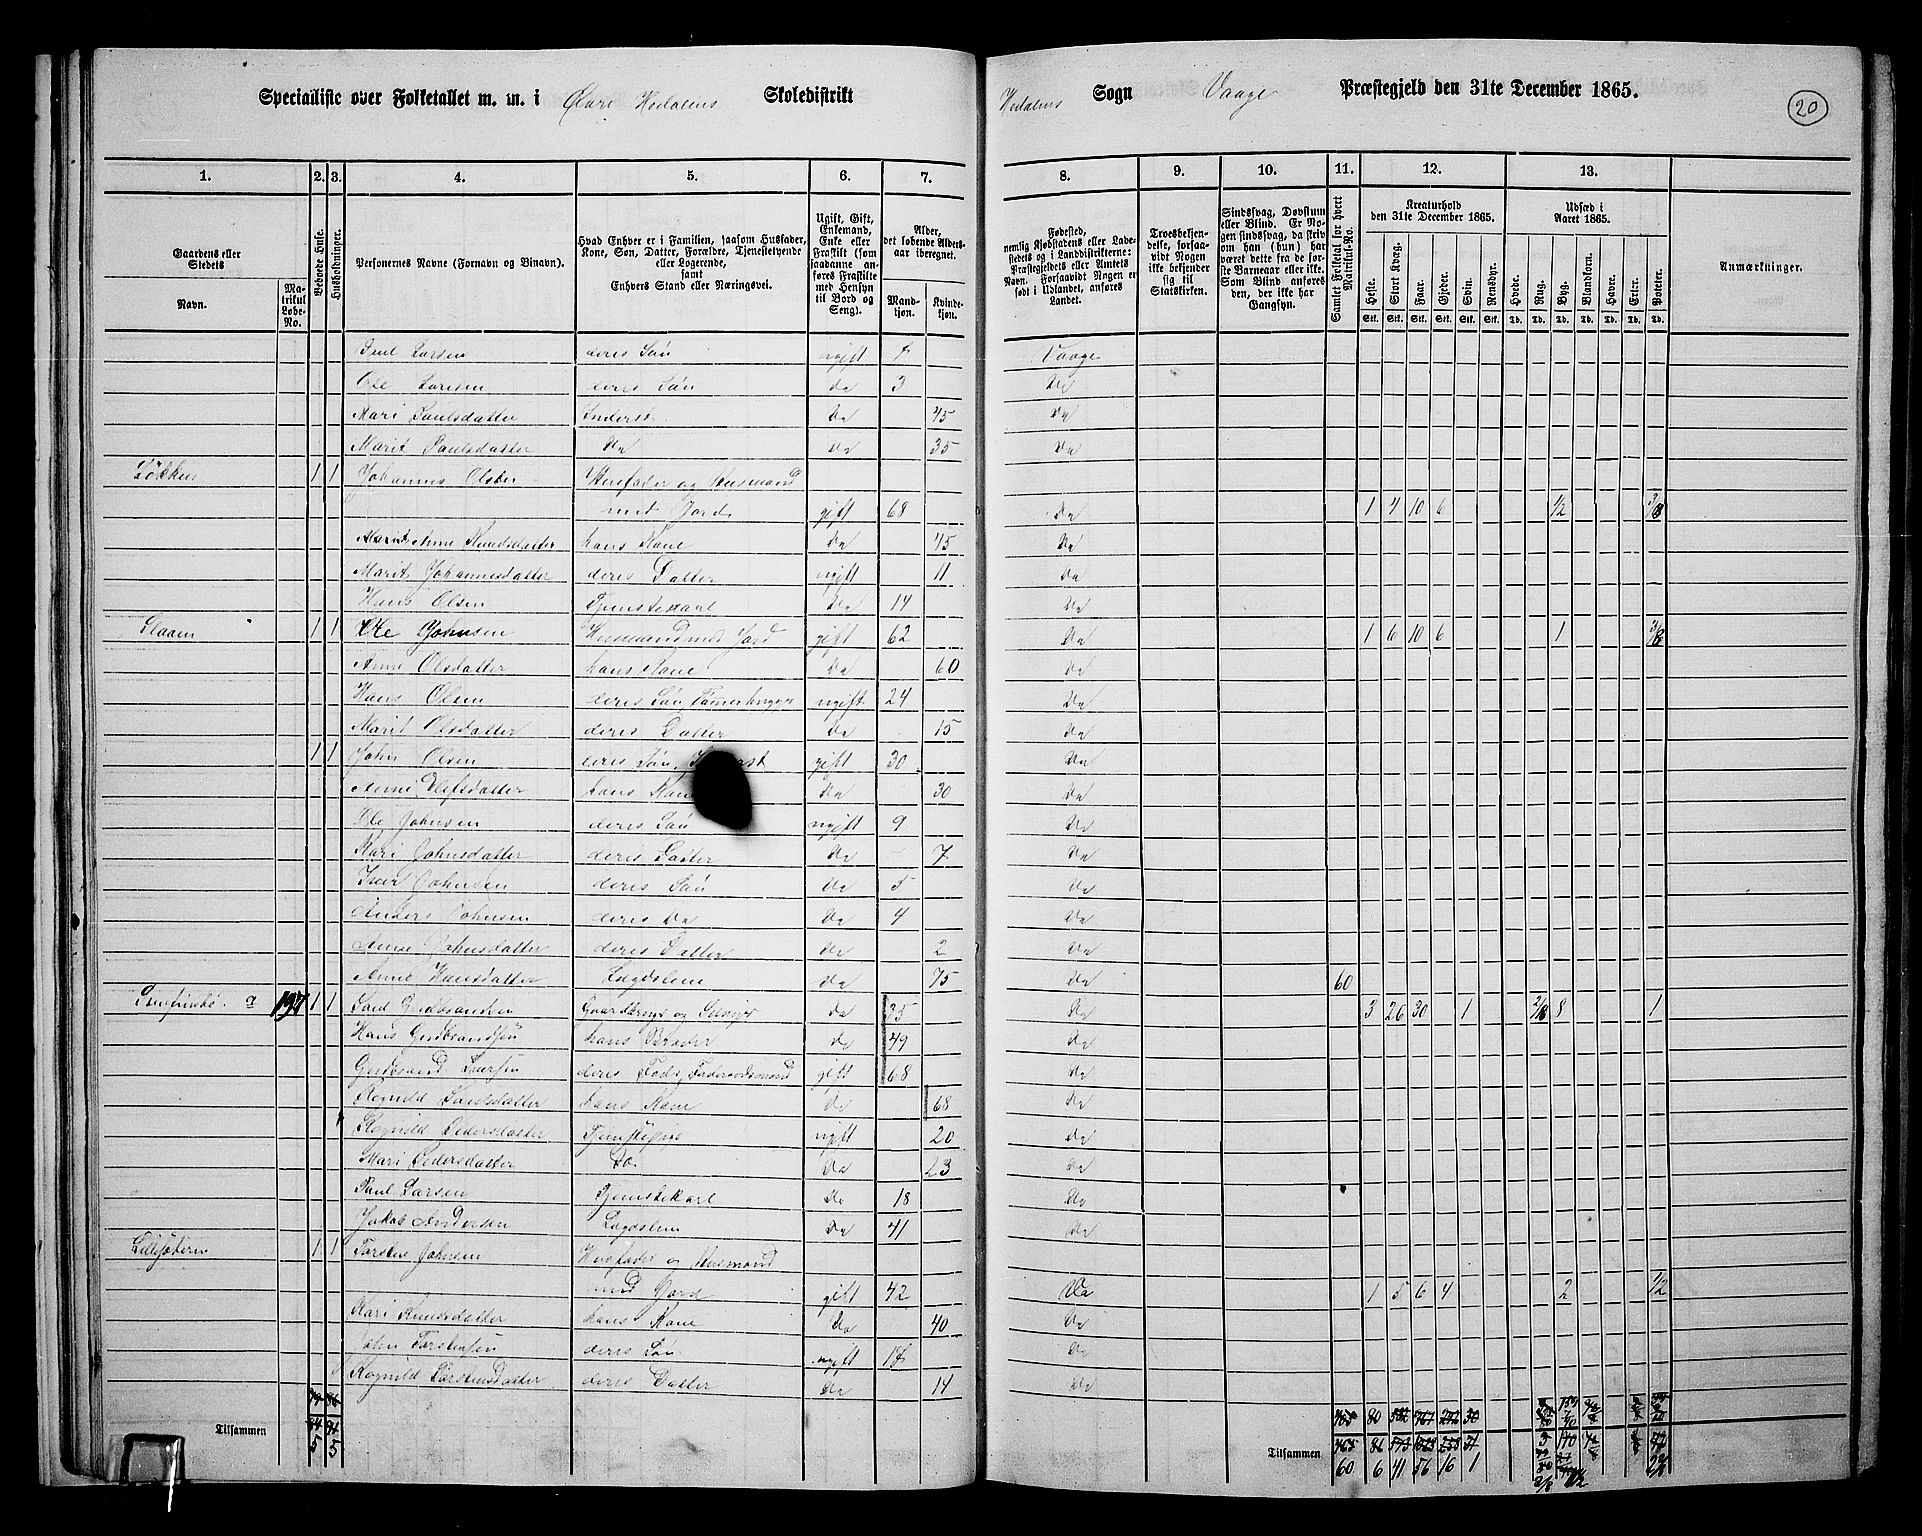 Specialliste over Folketallet m. m. i Øvre Hedalens Skoledistrikt
Hedalens Sogn Vaage Præstegjeld den 31te December 1865.
20
1. 2. 3. 4. 5. 6. 7. 8. 9. 10. 11. 12. 13.
Gaardens eller Stedets
Navn.
Matrikul Løbe-No.
Beboede Huse.
Husholdninger.
Personernes Navne (Fornavn og Binavn).
Hvad Enhver er i Familien, saasom Husfader, Kone, Søn, Datter, Forældre, Tjenestetyende eller Logerende, samt Enhvers Stand eller Næringsvei.
Ugift, Gift, Enkemand, Enke eller Fraskilt (som saadanne anføres Fraskilte med Hensyn til Bord og Seng).
Alder, det løbende Aldersaar iberegnet.
Mandkjøn. Kvindekjøn.
Fødested, nemlig Kjøbstadens eller Ladestedets og i Landdistrikterne: Præstegjeldets eller Amtets Navn. Forsaavidt Nogen er født i Udlandet, anføres Landet.
Troesbekjendelse, forsaavidt Nogen ikke bekjender sig til Statskirken.
Sindssvag, Døvstum eller Blind. Er Nogen sindssvag, da skriv om han (hun) har været dette fra de første Barneaar eller ikke. Som Blind anføres den, der ikke har Gangsyn.
Samlet Folketal for hvert Matrikul-No.
Kreaturhold den 31te December 1865.
Heste. Stort Kvæg. Faar. Gjeder. Svin. Rensdyr.
Stk. Stk. Stk. Stk. Stk. Stk.
Udsæd i Aaret 1865.
Hvede. Rug. Byg. Blandkorn. Havre. Erter. Poteter.
Td. Td. Td. Td. Td. Td. Td.
Anmærkninger.
Larsen deres Søn ugift Vaage
Ole Larsen deres Søn Do 3 Do
Mari Paulsdatter Inderst Do 45 Do
Marit Paulsdatter Do Do 35 Do
Løkken 1 1 Johannes Olsen Husfader og Husmand
med Jord gift 68 Do 1 4 10 6 1/2 3/8
Anne Knudsdatter hans Kone Do 45 Do
Marit Johannesdatter deres Datter ugift 11 Do
Hans Olsen Tjenestekarl Do 14 Do
1 1 Ole Johnsen Husmand med Jord gift 62 Do 1 6 10 6 1 3/8
Anne Olsdatter hans Kone Do 60 Do
Hans Olsen deres Søn, Tømerhugger ugift 24 Do
Marit Olsdatter deres Datter Do 15 Do
1 1 John Olsen deres Søn, gift 30 Do
Anne hans Kone Do 30 Do
Ole Johnsen deres Søn ugift 9 Do
Kari Johnsdatter deres Datter Do 7 Do
Iver Johnsen deres Søn Do 5 Do
Anders Johnsen deres Do Do 4 Do
Anne Johnsdatter deres Datter Do 2 Do
Anne Hansdatter Lægdslem Do 75 Do 60
a 197 1 1 Gudbrandsen Gaardbruger og Selveier Do 35 Do 3 26 30 1 2/8 8 1
Hans Gudbrandsen hans Broder Do 49 Do
Gudbrand deres Fader, Føderaadsmand gift 68 Do
Rognild hans Kone Do 68 Do
Rognild Pedersdatter Tjenstepige ugift 20 Do
Mari Pedersdatter Do. Do 23 Do
Paul Larsen Tjenstekarl Do 18 Do
Jakob Andersen Lægdslem Do 41 Do
1 1 Torsten Johnsen Husfader og Husmand
med Jord gift 42 Do 1 5 6 4 2 1/2
Kari Knudsdatter hans Kone Do 40 Do
John Torstensen deres Søn ugift Do
Rognild Torstensdatter deres Datter Do 14 Do
Tilsammen 5 5
Tilsammen 60 6 41 56 16 1